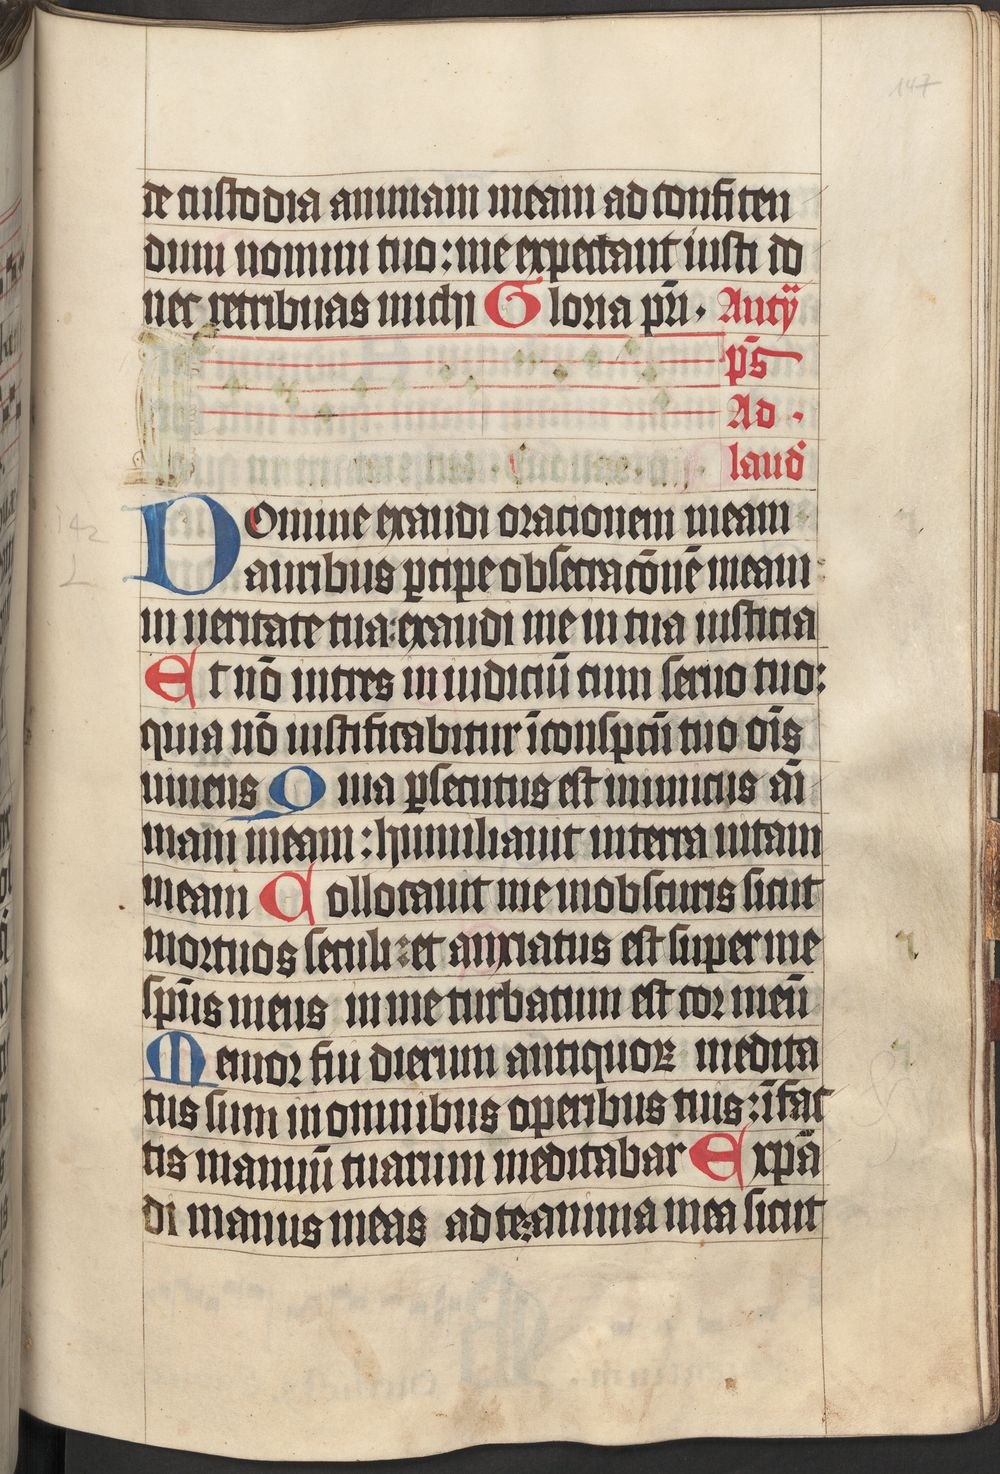 147
de custodia animam meam ad confiten
dum nomini tuo: me expectant iusti do
nec retribuas michi Gloria pr̄i. Antÿ
ps̄
Ad.
laud̄
142
Domine exaudi orationem meam
auribus ꝑcipe obsecrac̄oneꝫ meam
in veritate tua: exaudi me in tua iusticia
Et nō intres in iudiciū cum seruo tuo:
quia nō iustificabitur īconspcū tuo oīs
viuens Quia ꝑsecutus est inimicus aī
mam meam: humiliauit interra vitam
meam Collocauit me inobscuris sicut
mortuos seculi: et anxiatus est super me
spūs meus in me turbatum est cor meū
Memor fui dierum antiquoꝝ medita
tus sum inomnibus operibus tuis: īfac
tis manuū tuarum meditabar Expā
di manus meas ad te: anima mea sicut